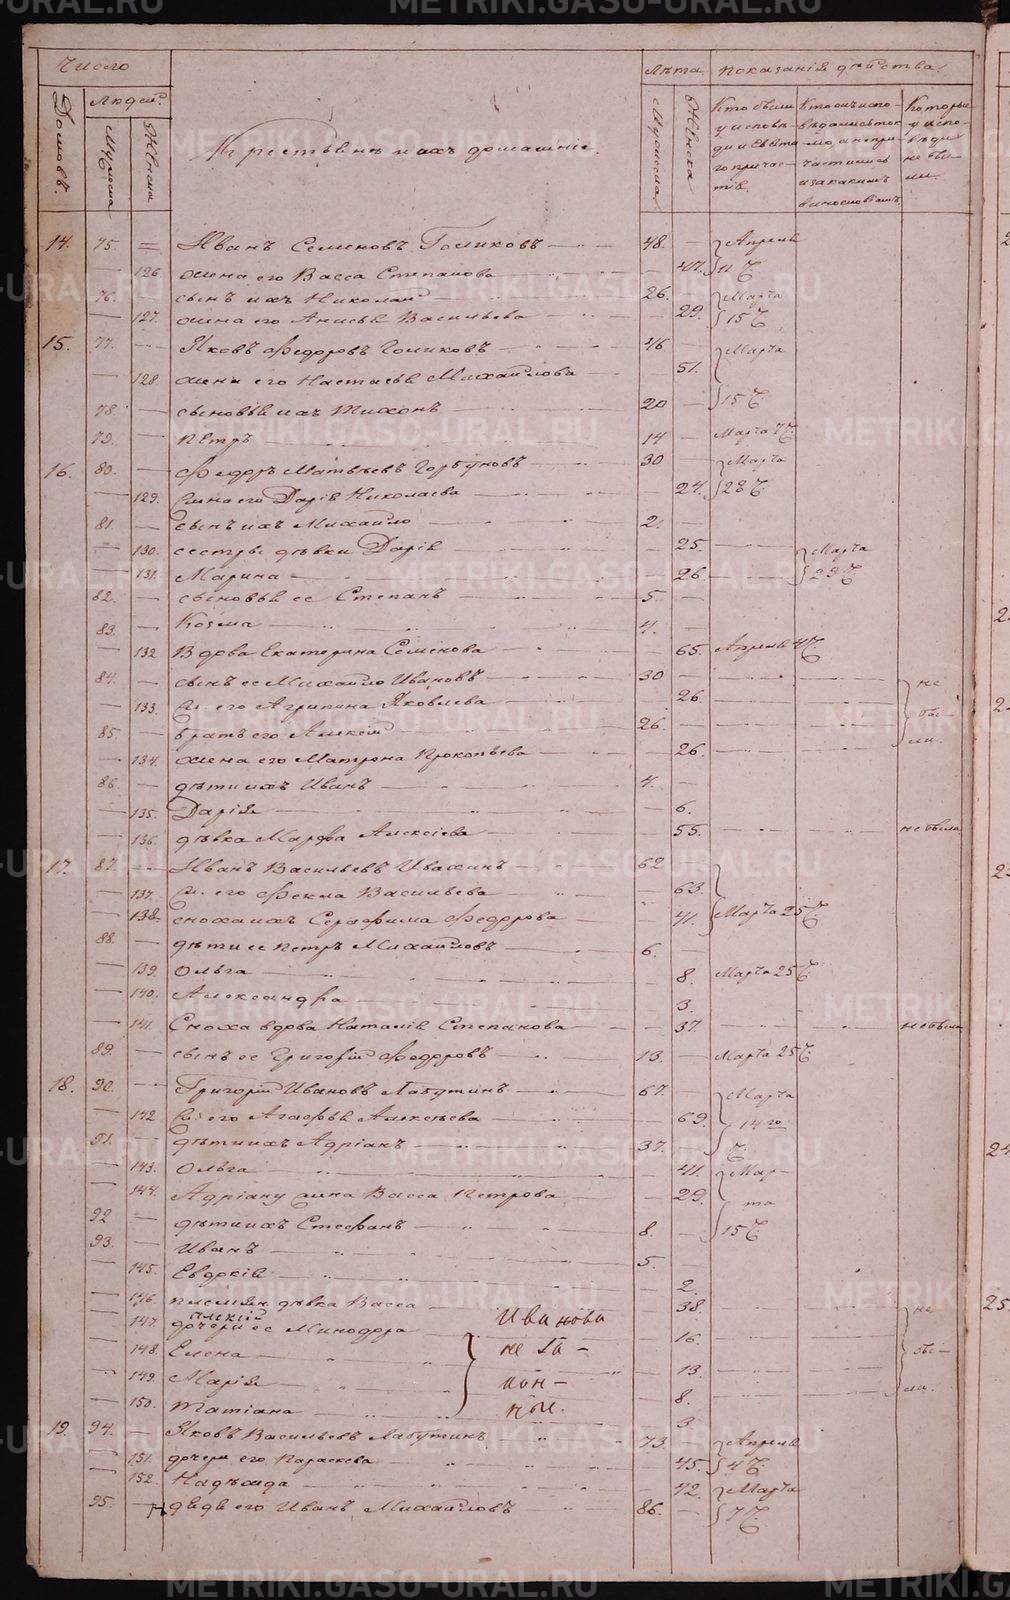 Число
Лѣта. показанія дѣйства.
Домовъ.
Людей.
Мужеска
Женска
Крестьяне и ихъ домашніе.
Мужеска
Женска
Кто были у исповѣди и Святаго причастія.
Кто исповѣдались токмо, а не причастились и за какимъ винословіемъ.
Которые у исповѣди не были.
14. 75. Иванъ Семеновъ Голиковъ 48. Апрѣля
126 жена его Васса Степанова 47. 11 Ч.
76. сынъ ихъ Николай 26. Марта
127. жена его Анисья Васильева 29. 15 Ч.
15. 77. Яковъ Федоровъ Голиковъ 46 Марта
128. жена его Настасья Михайлова 51.
78. сыновья ихъ Тихонъ 20 15 Ч.
79. Петръ 14 Марта 7 Ч.
16. 80. Федоръ Матвѣевъ Горбуновъ 30 Марта
129. жена его Дарія Николаева 24. 28 Ч.
81. сынъ ихъ Михайло 2.
130. сестры дѣвки Дарія 25. Марта
131. Марина 26. 29 Ч.
82. сыновья ее Степанъ 5.
83. Козма 4.
132 Вдова Екатерина Семенова 65. Апрѣля 4 Ч.
84. сынъ ее Михайло Ивановъ 30 не
133. ж. его Агрипина Яковлева 26. бы-
85. братъ его Алексій 26. ли.
134. жена его Матрона Прокопьева 26.
86. дѣти ихъ Иванъ 4.
135. Дарія 6.
136. дѣвка Марфа Алексіева 55. не была
17. 87. Иванъ Васильевъ Ивахинъ 62
137. ж. его Фекла Васильева 63.
138. сноха ихъ Серафима Федорова 41. Марта 25 Ч.
88. дѣти ее Петръ Михайловъ 6.
139. Ольга 8. Марта 25 Ч.
140. Александра 3.
141. Сноха вдова Наталія Степанова 37. не была
89. сынъ ее Григорій Федоровъ 13. Марта 25 Ч.
18. 90. Григорій Ивановъ Лабутинъ 67. Марта
142 ж. его Агафья Алексѣева 69. 14 го
91. дѣти ихъ Адріанъ 37. Ч.
143. Ольга 41. Мар-
144. Адріану жена Васса Петрова 29. та
92 дѣти ихъ Стефанъ 8. 15 Ч.
93. Иванъ 5.
145. Евдокія 2.
146. дѣвка Васса Иванова 38. не
147. дочери ее Минодора 16. бы-
148. Елена 13. ли.
149. Марія 8.
150. Татіана 3
незаконныя.
19. 94. Яковъ Васильевъ Лабутинъ 73. Апрѣля
151. дочери его Параскева 45. 4 Ч.
152. Надежда 42. Марта
95. дядя его Иванъ Михайловъ 86. 7 Ч.
METRIKI.GASO-URAL.RU